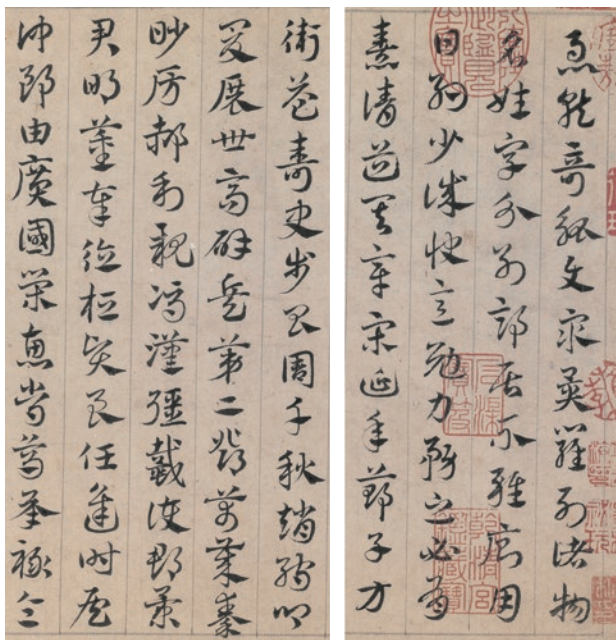 急就奇觚與衆異羅列諸物
名姓字分別部居不雜廁用
日約少誠快意勉力務之必有
憙請道其章宋延年鄭子方
衛益壽史步昌周千秋趙孺卿
爰展世高辟兵第二鄧萬歲秦
眇房郝利親馮漢彊戴護郡景
君明董奉德桓賢良任逢時侯
仲郎由廣國榮惠常烏承祿令